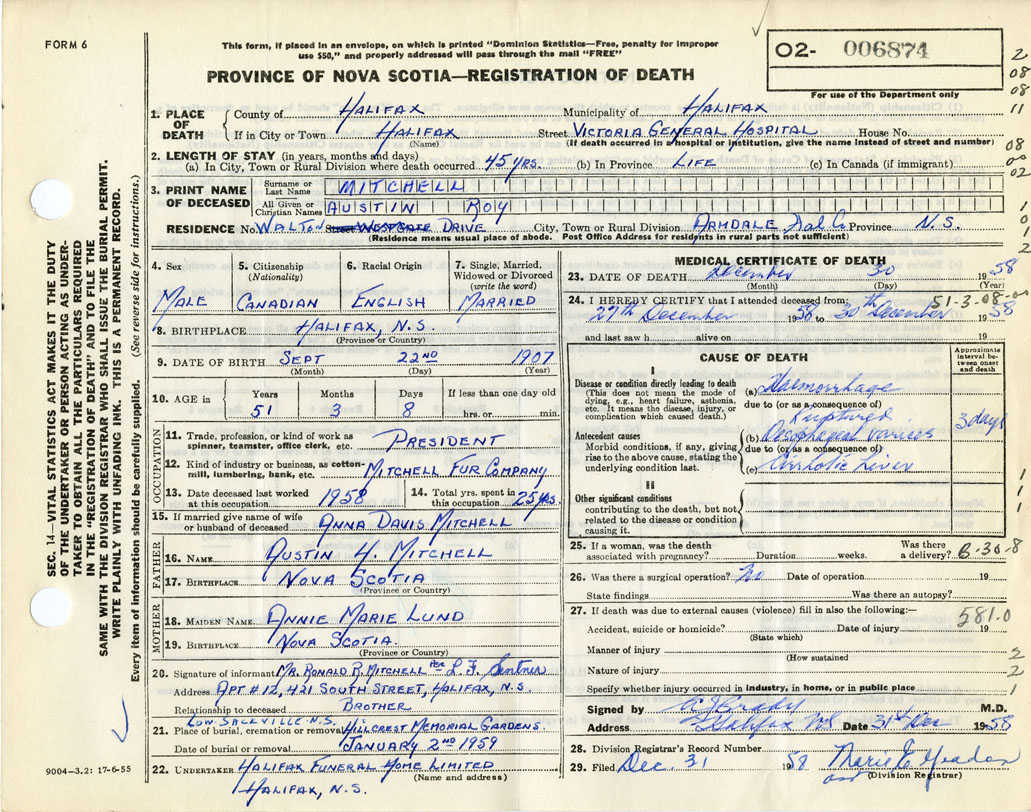 FORM 6
This form, if placed in an envelope, on which is printed "Dominion Statistics—Free, penalty for improper
use $50," and properly addressed will pass through the mail "FREE"
PROVINCE OF NOVA SCOTIA—REGISTRATION OF DEATH
02- 006874
For use of the Department only
2
08
08
11
08
00
02
1
0
1
2
SEC. 14—VITAL STATISTICS ACT MAKES IT THE DUTY
OF THE UNDERTAKER OR PERSON ACTING AS UNDER-
TAKER TO OBTAIN ALL THE PARTICULARS REQUIRED
IN THE "REGISTRATION OF DEATH" AND TO FILE THE
SAME WITH THE DIVISION REGISTRAR WHO SHALL ISSUE THE BURIAL PERMIT.
WRITE PLAINLY WITH UNFADING INK. THIS IS A PERMANENT RECORD.
Every item of information should be carefully supplied. (See reverse side for instructions.)
1. PLACE OF DEATH
County of HALIFAX Municipality of HALIFAX
If in City or Town HALIFAX Street VICTORIA GENERAL HOSPITAL House No.
(Name) (If death occurred in a hospital or institution, give the name instead of street and number)
2. LENGTH OF STAY (in years, months and days)
(a) In City, Town or Rural Division where death occurred 45 YRS. (b) In Province LIFE (c) In Canada (if immigrant)
3. PRINT NAME OF DECEASED
Surname or Last Name MITCHELL
All Given or Christian Names AUSTIN ROY
RESIDENCE No. WALTON Street WESTGATE DRIVE City, Town or Rural Division ARMDALE Hal Co Province N.S.
(Residence means usual place of abode. Post Office Address for residents in rural parts not sufficient)
4. Sex
MALE
5. Citizenship
(Nationality)
CANADIAN
6. Racial Origin
ENGLISH
7. Single, Married,
Widowed or Divorced
(write the word)
MARRIED
8. BIRTHPLACE HALIFAX, N.S.
(Province or Country)
9. DATE OF BIRTH SEPT 22ND 1907
(Month) (Day) (Year)
10. AGE in
Years Months Days If less than one day
51 3 8 hrs. or min.
OCCUPATION
11. Trade, profession, or kind of work as
spinner, teamster, office clerk, etc. PRESIDENT
12. Kind of industry or business, as cotton-
mill, lumbering, bank, etc. MITCHELL FUR COMPANY
13. Date deceased last worked
at this occupation 1958
14. Total yrs. spent in
this occupation 25 yrs.
15. If married give name of wife
or husband of deceased ANNA DAVIS MITCHELL
FATHER
16. NAME AUSTIN H. MITCHELL
17. BIRTHPLACE NOVA SCOTIA
(Province or Country)
MOTHER
18. MAIDEN NAME ANNIE MARIE LUND
19. BIRTHPLACE NOVA SCOTIA.
(Province or Country)
20. Signature of informant MR. RONALD R. MITCHELL per L. F. Sentner
Address APT #12, 421 SOUTH STREET, HALIFAX, N.S.
Relationship to deceased BROTHER
LOW. SACKVILLE N.S.
21. Place of burial, cremation or removal HILLCREST MEMORIAL GARDENS.
Date of burial or removal JANUARY 2ND 1959
22. UNDERTAKER HALIFAX FUNERAL HOME LIMITED
(Name and address)
HALIFAX, N.S.
9004—3.2: 17-6-55
MEDICAL CERTIFICATE OF DEATH
23. DATE OF DEATH December 30 1958
(Month) (Day) (Year)
51-3-08-00
24. I HEREBY CERTIFY that I attended deceased from:
29th December 1958 to 30th December 1958
and last saw h alive on 19
CAUSE OF DEATH
Approximate
interval be-
tween onset
and death
I
Disease or condition directly leading to death
(This does not mean the mode of
dying, e.g., heart failure, asthenia,
etc. It means the disease, injury, or
complication which caused death.)
(a) Haemorrhage
due to (or as a consequence of)
Ruptured
3 days
Antecedent causes
Morbid conditions, if any, giving
rise to the above cause, stating the
underlying condition last.
(b) Oesophageal varices
due to (or as a consequence of)
(c) Cirrhotic Liver
1
1
1
II
Other significant conditions
contributing to the death, but not
related to the disease or condition
causing it.
25. If a woman, was the death
associated with pregnancy? Duration weeks. Was there
a delivery? 6-30-8
26. Was there a surgical operation? No Date of operation 19
State findings Was there an autopsy?
27. If death was due to external causes (violence) fill in also the following:—
581.0
Accident, suicide or homicide? Date of injury 19
(State which)
Manner of injury 2
(How sustained
Nature of injury 2
Specify whether injury occurred in industry, in home, or in public place 1
Signed by A J Brady M.D.
Address Halifax NS Date 31st Dec 1958
28. Division Registrar's Record Number
29. Filed Dec. 31 1958 Marie E.
(Division Registrar)